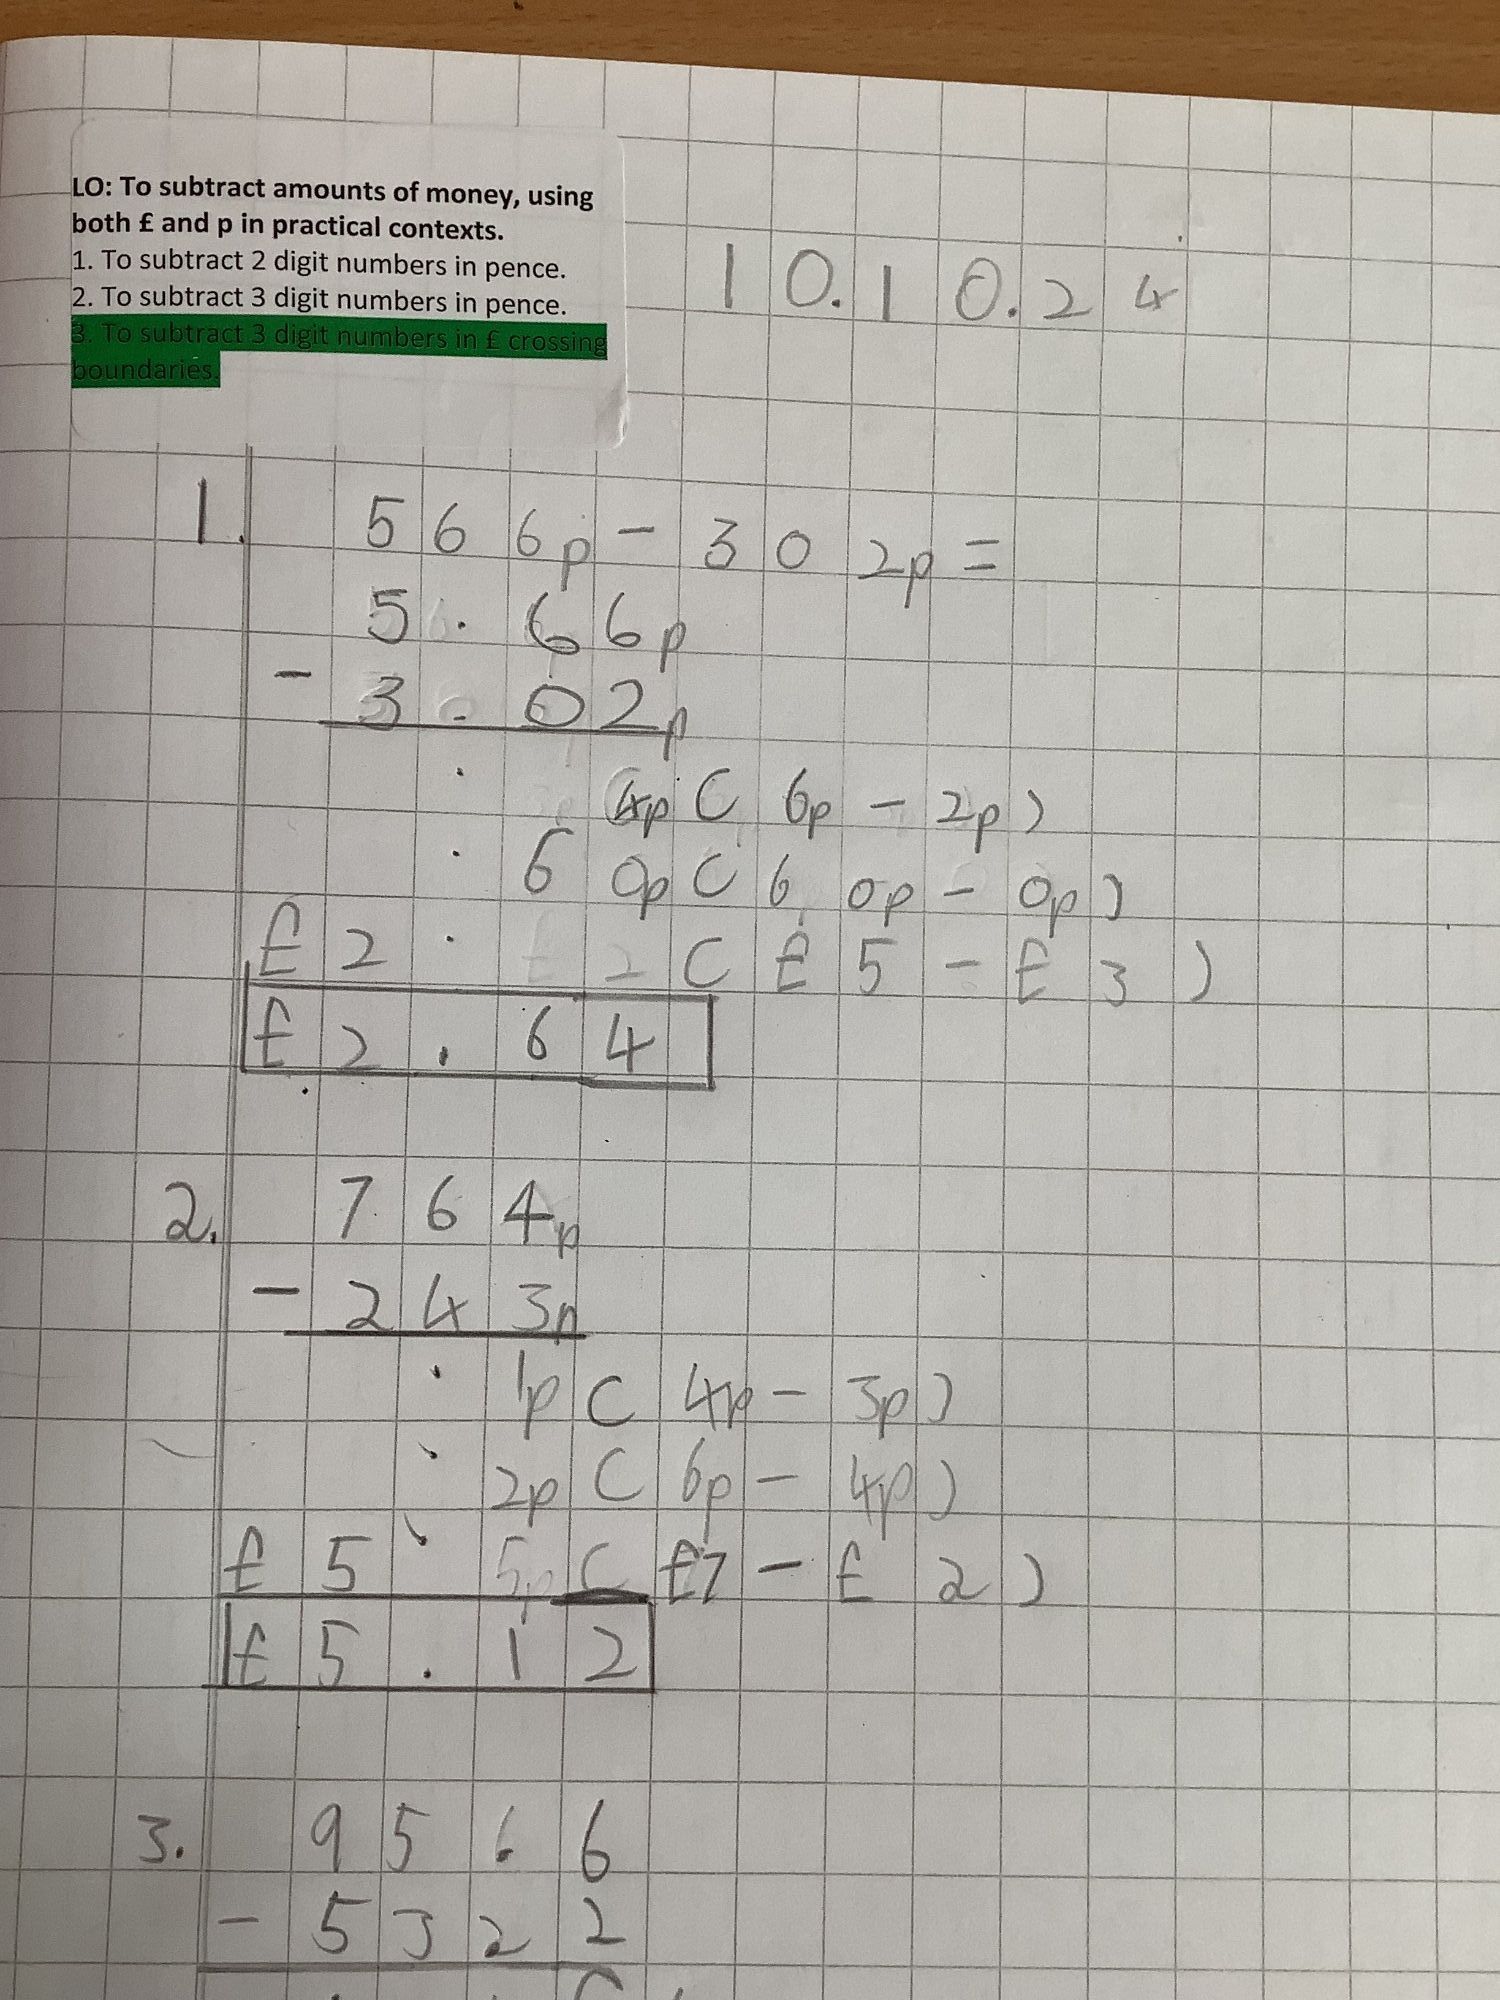 LO: To subtract amounts of money, using
both £ and p in practical contexts.
1. To subtract 2 digit numbers in pence.
2. To subtract 3 digit numbers in pence.
3. To subtract 3 digit numbers in £ crossing
boundaries.
10.10.24
1. 566p - 302p =
5.66p
- 3.02p
. 4p ( 6p - 2p )
. 60p ( 60p - 0p )
£2. ( £5 - £3 )
£2.64
2. 764p
- 243p
. 1p ( 4p - 3p )
. 2p ( 6p - 4p )
£5. ( £7 - £2 )
£5.12
3. 9566
- 5322